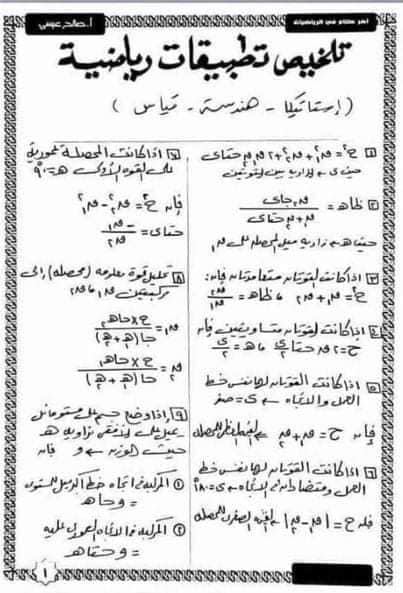 أ. صالح عيسى
تلخيص تطبيقات رياضية
( إستاتيكا - هندسة - قياس )
١ ح² = ق₁² + ق₂² + ٢ ق₁ ق₂ حتاى
حيث ى هى الزاوية بين القوتين
٢ ظاهـ = ق₂ جاى / ق₁ + ق₂ حتاى
حيث هـ زاوية ميل المحصلة على ق₁
٣ إذا كانت القوتان متعامدتان فإنه:
ح² = ق₁² + ق₂² ، ظاهـ = ق₂ / ق₁
٤ إذا كانت القوتان متساويتين فإنه
ح = ٢ ق حتا ى/٢ ، هـ = ى/٢
٥ إذا كانت القوتان لهما نفس خط
العمل والاتجاه ى = صفر
فإنه ح = ق₁ + ق₂ القيمة العظمى للمحصلة
٦ إذا كانت القوتان لهما نفس خط
العمل ومتضادتان فى الاتجاه ى = ١٨٠°
فإنه ح = |ق₁ - ق₂| القيمة الصغرى للمحصلة
٧ إذا كانت المحصلة عمودية
على القوة الأولى هـ = ٩٠°
فإنه ح² = ق₂² - ق₁²
حتاى = -ق₁ / ق₂
٨ تحليل قوة معلومة (محصلة) إلى
مركبتين ق₁ ، ق₂
ق₁ = ح × حاهـ₂ / حا(هـ₁ + هـ₂)
ق₂ = ح × حاهـ₁ / حا(هـ₁ + هـ₂)
٩ إذا وضع جسم على مستو مائل
يميل على الأفقى بزاوية هـ
حيث الوزن و فإنه
١ المركبة فى اتجاه خط أكبر ميل للمستوى
= و حاهـ
٢ المركبة فى الاتجاه العمودى عليه
= و حتاهـ
١